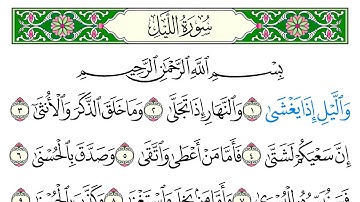 سُورَةُ اللَّيْلِ
بِسْمِ اللَّهِ الرَّحْمَٰنِ الرَّحِيمِ
وَاللَّيْلِ إِذَا يَغْشَىٰ ١ وَالنَّهَارِ إِذَا تَجَلَّىٰ ٢ وَمَا خَلَقَ الذَّكَرَ وَالْأُنثَىٰ ٣
إِنَّ سَعْيَكُمْ لَشَتَّىٰ ٤ فَأَمَّا مَنْ أَعْطَىٰ وَاتَّقَىٰ ٥ وَصَدَّقَ بِالْحُسْنَىٰ ٦